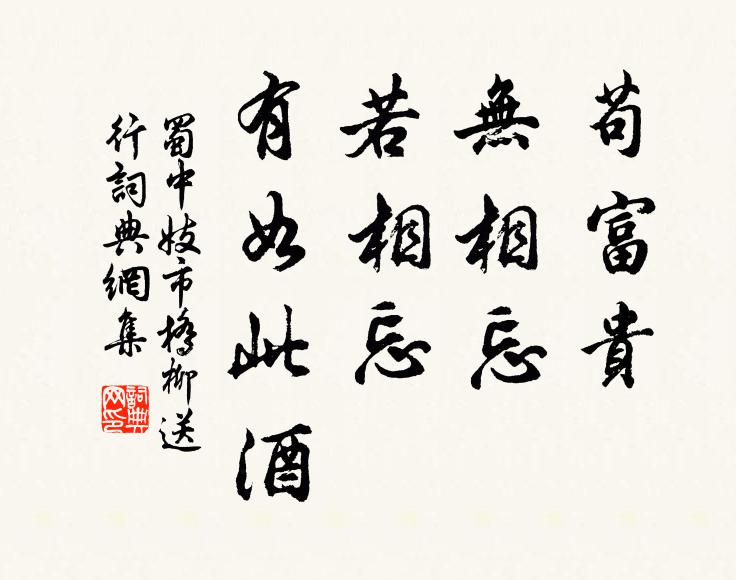 苟富貴
無相忘
若相忘
有如此酒
蜀中妓市橋柳送
行詞典網集
詞典網印